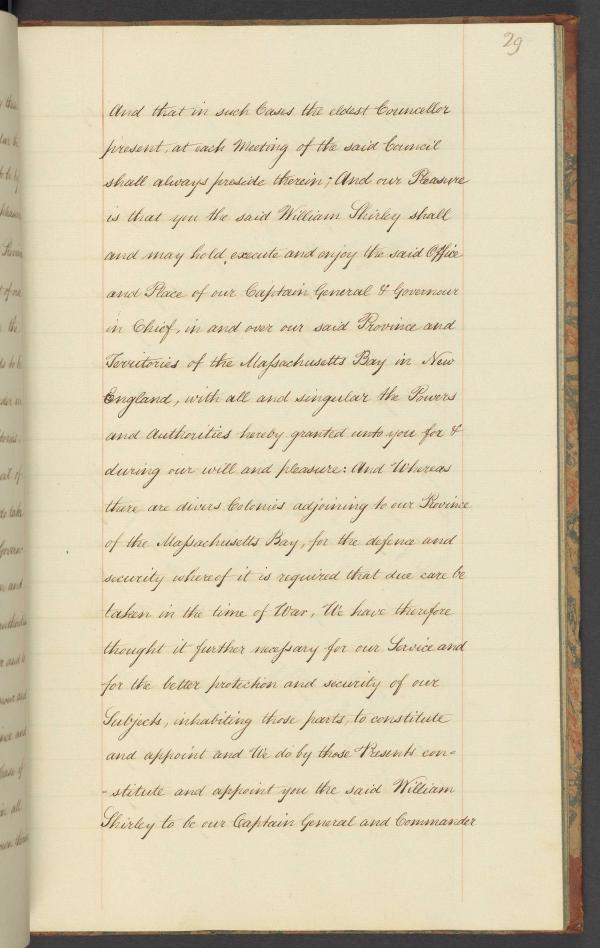 29
And that in such Cases the eldest Councellor
present, at each Meeting of the said Council
shall always preside therein; And our Pleasure
is that you the said William Shirley shall
and may hold, execute and enjoy the said Office
and Place of our Captain General & Governour
in Chief, in and over our said Province and
Territories of the Massachusetts Bay in New
England, with all and singular the Powers
and Authorities hereby granted unto you for &
during our will and pleasure: And Whereas
there are divers Colonies adjoining to our Province
of the Massachusetts Bay, for the defence and
security whereof it is required that due care be
taken in the time of War, We have therefore
thought it further necessary for our Service and
for the better protection and security of our
Subjects, inhabiting those parts, to constitute
and appoint and We do by those Presents con-
-stitute and appoint you the said William
Shirley to be our Captain General and Commander